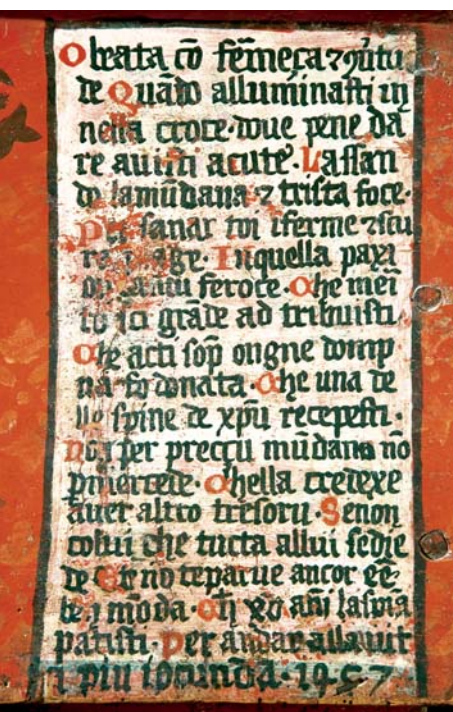 O beata cō fermeça ⁊ uͥtu
de Quādo alluminasti in
nella croce·doue pene da
re auisti acute· Lassan
do la mūdana ⁊ trista foce·
Per sanar toi iferme ⁊ scu
re plage· In quella paxi
on tantu feroce· Che meri
to sci grāde ad tribuisti
Che acti sop̄ ongne domp
na fo donata· Che una de
llo spine de xp̄u recepesti·
non per preççu mūdano nō
p̄ mercede· Chella credexe
auer altro tresoru· Senon
colui che tucta allui sedie
de Et nō te parue ancor eē
be mōda· Ch xv āni la spina
patisti· Per andar alla uit
piu ioconda· 1457